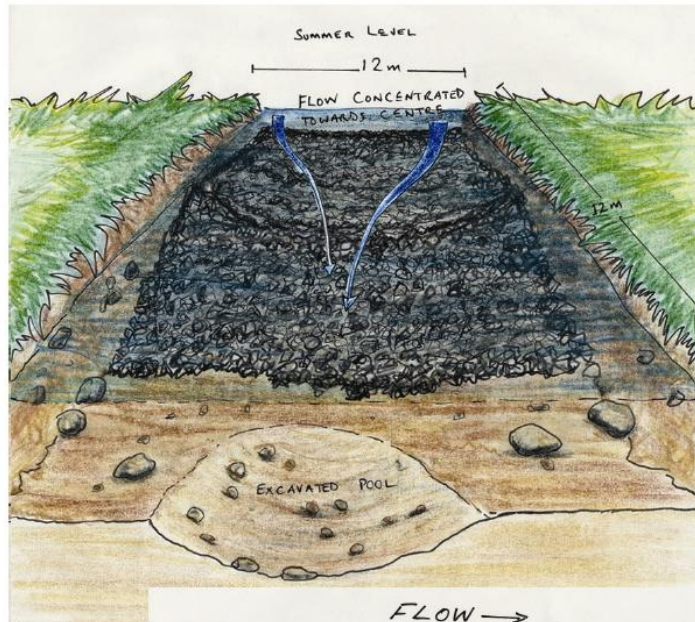 SUMMER LEVEL
12m
FLOW CONCENTRATED
TOWARDS CENTRE
12m
EXCAVATED POOL
FLOW